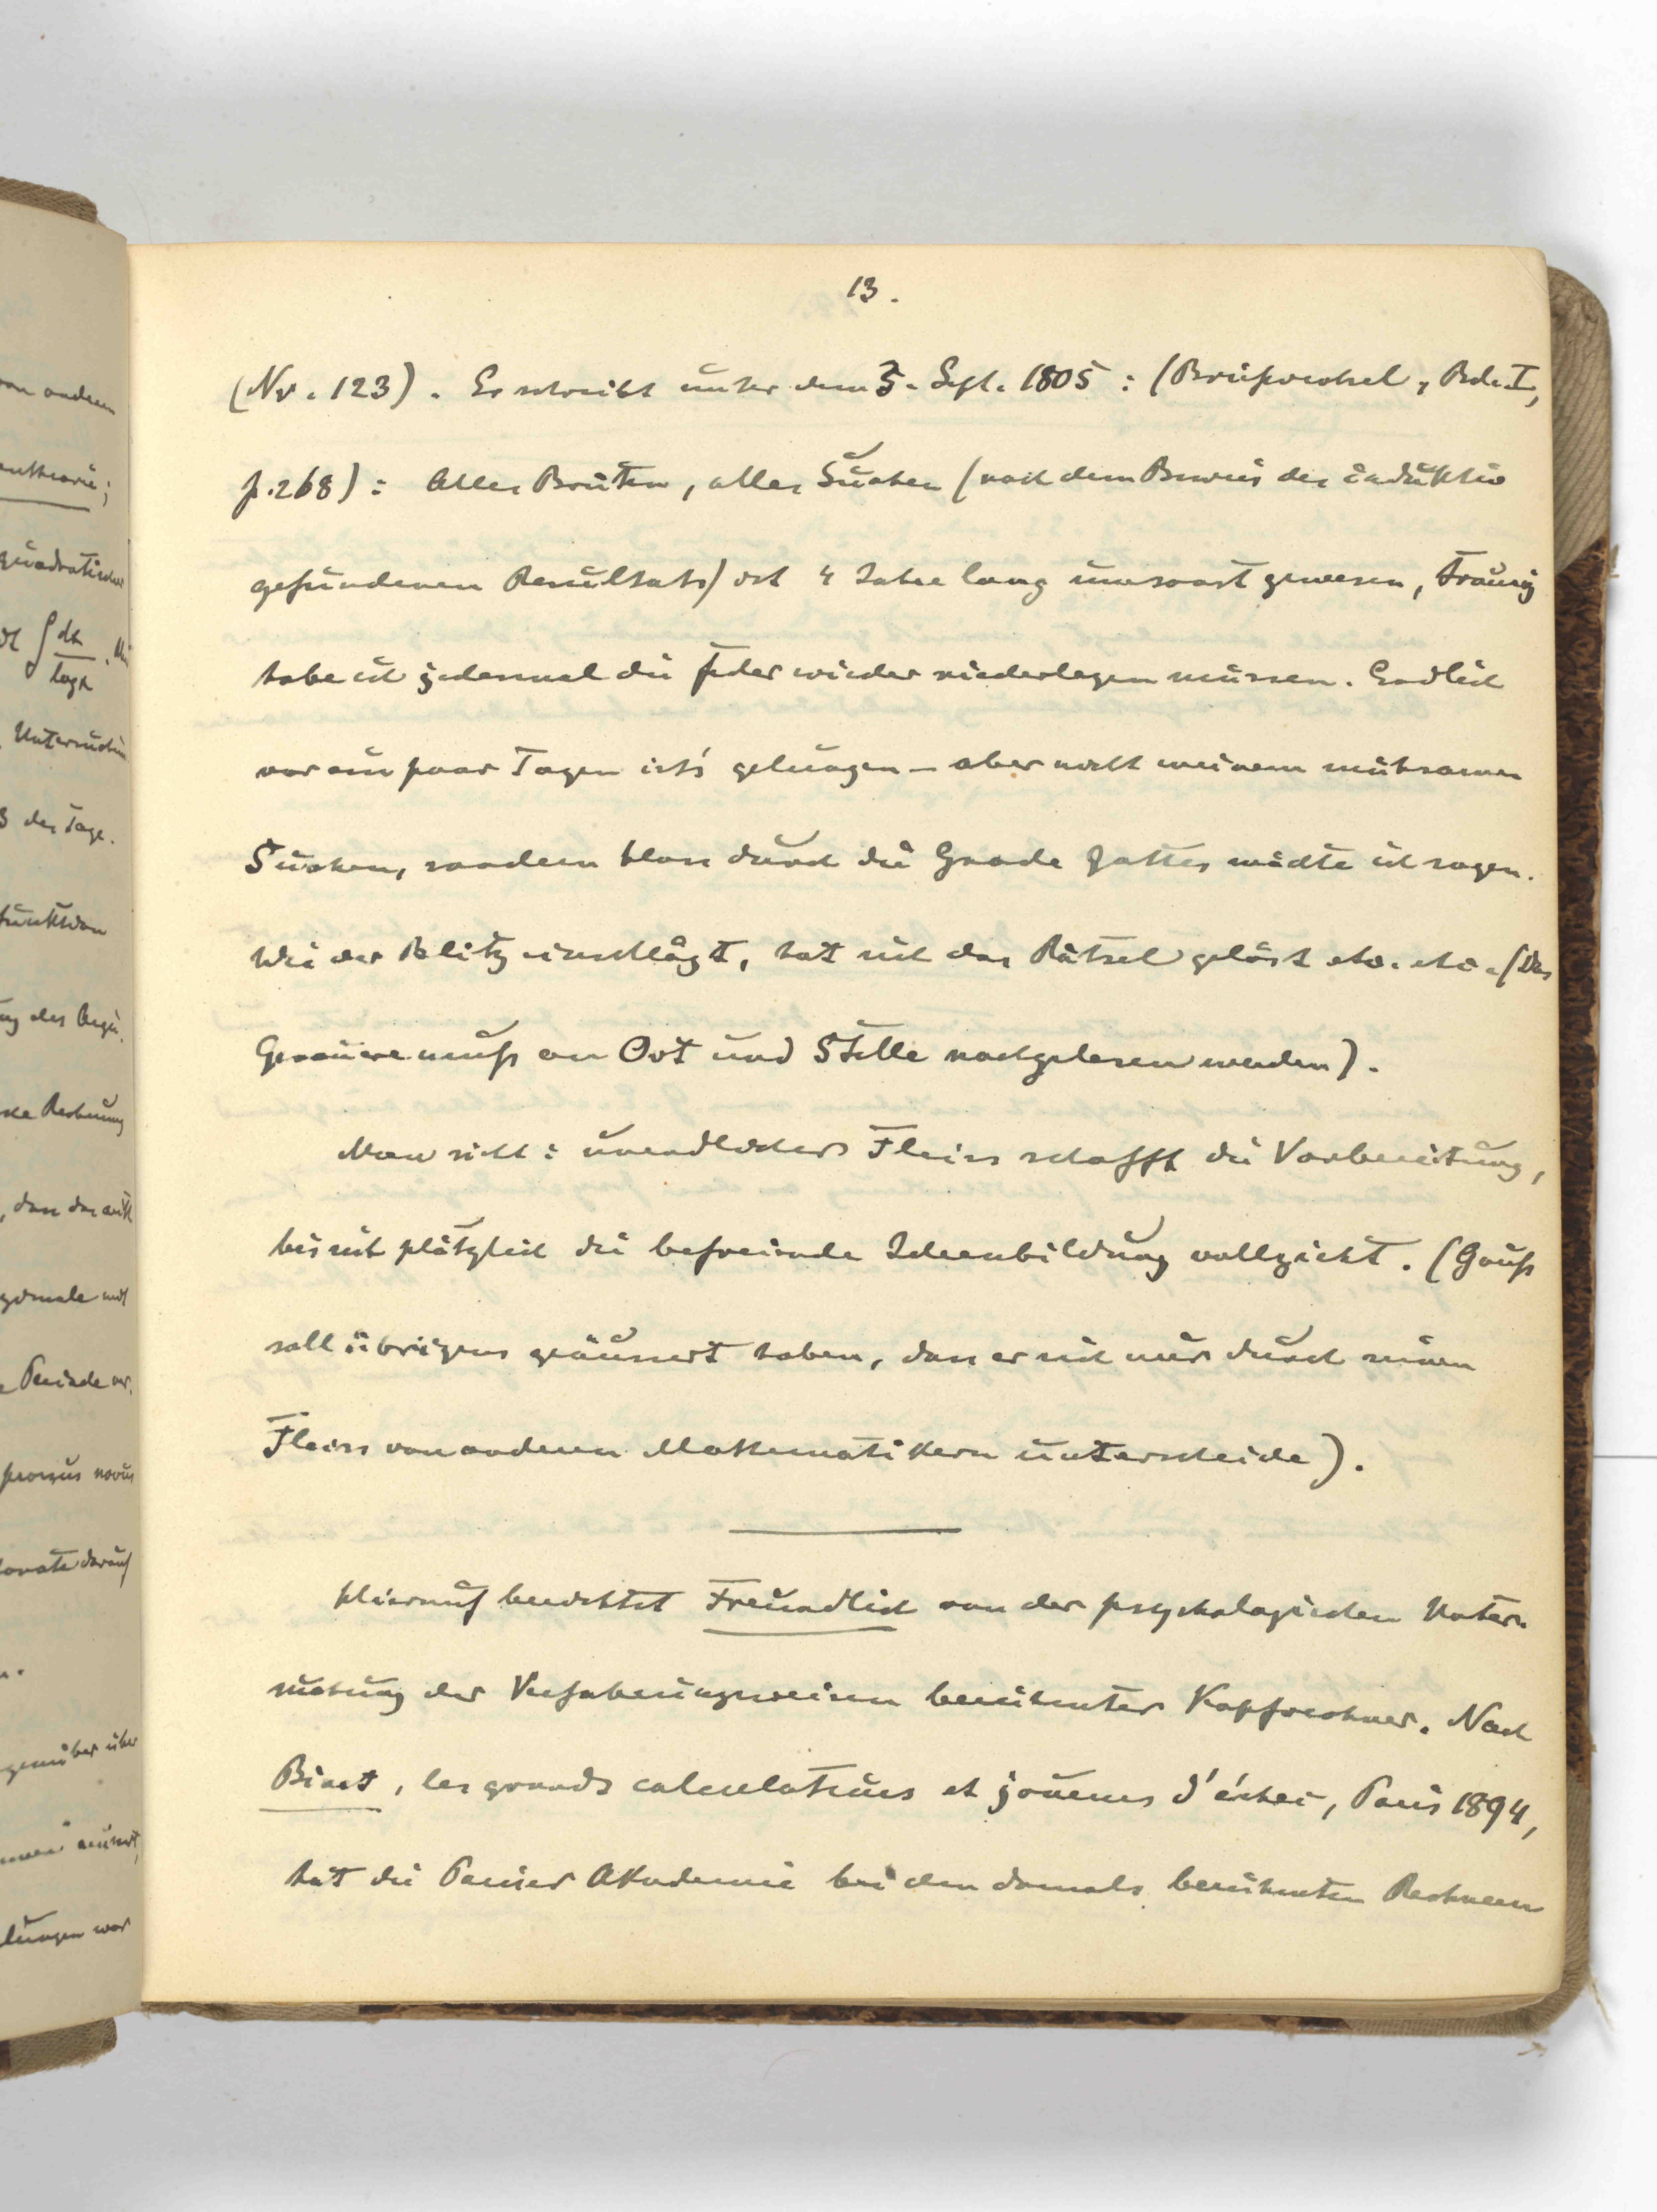 13.
(Nr. 123). Er schreibt unter dem 3. Sept. 1805: (Briefwechsel, Bd. I,
p. 268): Alles Brüten, alles Suchen (nach dem Beweis des induktiv
gefundenen Resultats) ist 4 Jahre lang umsonst gewesen, traurig
habe ich jedesmal die Feder wieder niederlegen müssen. Endlich
vor ein paar Tagen ist's gelungen – aber nicht meinem mühsamen
Suchen, sondern bloss durch die Gnade Gottes möchte ich sagen.
Wie der Blitz einschlägt, hat sich das Rätsel gelöst etc. etc. (Das
Genauere muß an Ort und Stelle nachgelesen werden).
Man sieht: unendlicher Fleiss schafft die Vorbereitung,
bis sich plötzlich die befreiende Ideenbildung vollzieht. (Gauß
soll übrigens geäussert haben, dass er sich nur durch seinen
Fleiss von anderen Mathematikern unterscheide).
Hierauf berichtet Freundlich von der psychologischen Unter-
suchung der Verfahrungsweisen berühmter Kopfrechner. Nach
Binet, les grands calculateurs et joueurs d'échec, Paris 1894,
hat die Pariser Akademie bei den damals berühmten Rechnern
von anderen
quadratischer
∫ dx
log x
Untersuchun
3 der Tage.
Funktion
ng des Argu.
Rechnung
, dass das
Periode
novus
darauf
gegenüber über
lungen war